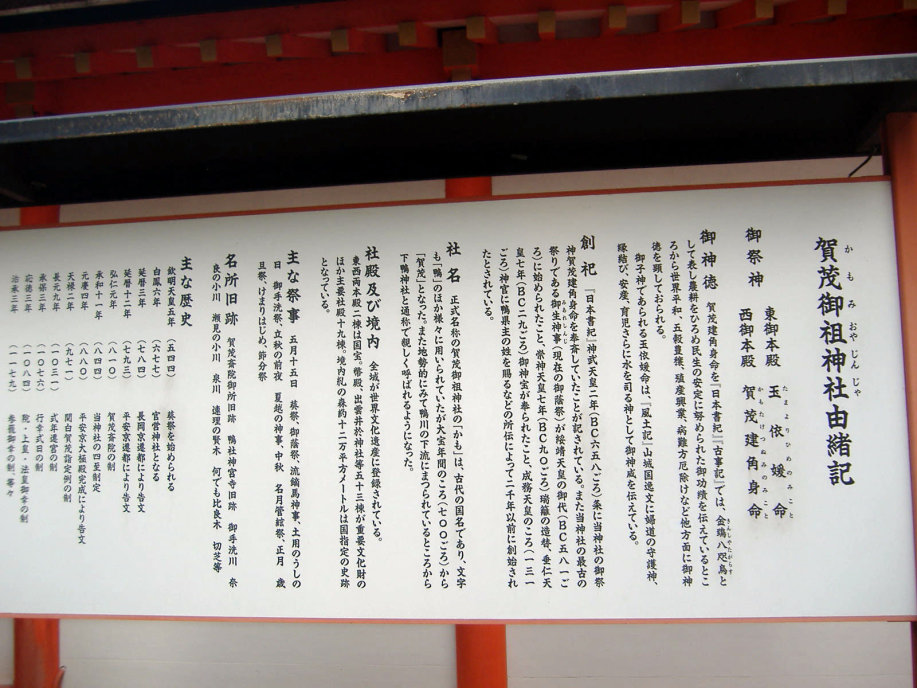 賀茂御祖神社由緒記
かもみおやじんじゃ
御祭神
東御本殿 玉依媛命
たまよりひめのみこと
西御本殿 賀茂建角身命
かもたけつぬみのみこと
御神徳 賀茂建角身命を『日本書紀』『古事記』では、金鵄八咫烏と
きんしやたがらす
して表し農耕をひろめ民生の安定に努められた御功績を伝えているとこ
ろから世界平和、五穀豊穣、殖産興業、病難方厄除けなど他方面に御神
徳を顕しておられる。
御子神であられる玉依媛命は、『風土記』山城国逸文に婦道の守護神、
縁結び、安産、育児さらに水を司る神として御神威を伝えている。
創祀 『日本書紀』神武天皇二年(BC六五八ごろ)条に当神社の御祭
神、賀茂建角身命を奉斎していたことが記されている。また当神社の最古の
祭りである御生神事(現在の御蔭祭)が綏靖天皇の御代(BC五八一ご
みあれしんじ
ろ)に始められたこと、崇神天皇七年(BC九〇ごろ)瑞籬の造替、垂仁天
皇七年(BC二九ごろ)御神宝が奉られたこと、成務天皇のころ(一三一
ごろ)神宮に鴨県主の姓を賜るなどの所伝によって二千年以前に創始され
たとされている。
社名 正式名称の賀茂御祖神社の「かも」は、古代の国名であり、文字
も「鴨」のほか様々に用いられていたが大宝年間のころ(七〇〇ごろ)から
「賀茂」となった。また地勢的にみて鴨川の下流にまつられているところから
下鴨神社と通称で親しく呼ばれるようになった。
社殿及び境内 全域が世界文化遺産に登録されている。
東西両本殿二棟は国宝。幣殿、出雲井於神社等五十三棟が重要文化財の
ほか主要社殿十九棟。境内糺の森約十二万平方メートルは国指定の史跡
となっている。
主な祭事 五月十五日 葵祭、御蔭祭、流鏑馬神事、土用のうしの
日 御手洗祭、立秋の前夜 夏越の神事、中秋 名月管絃祭、正月 歳
旦祭、けまりはじめ、節分祭
名所旧跡 賀茂斎院御所旧跡 鴨社神宮寺旧跡 御手洗川 奈
良の小川 瀬見の小川 泉川 連理の賢木 何でも比良木 切芝等
主な歴史
欽明天皇五年 (五四四) 葵祭を始められる
白鳳六年 (六七七) 官営神社となる
延暦三年 (七八四) 長岡京遷都により告文
延暦十二年 (七九三) 平安京遷都により告文
弘仁元年 (八一〇) 賀茂斎院の制
承和十一年 (八四四) 当神社の四至制定
元慶四年 (八八〇) 平安京大極殿完成により告文
天禄二年 (九七一) 関白賀茂詣恒例の制
長元九年 (一〇三一) 式年遷宮の制
承保三年 (一〇七六) 行幸式日の制
応徳三年 (一〇八四) 院・上皇・法皇御幸の制
治承三年 (一一七九) 参籠御幸の制、等々